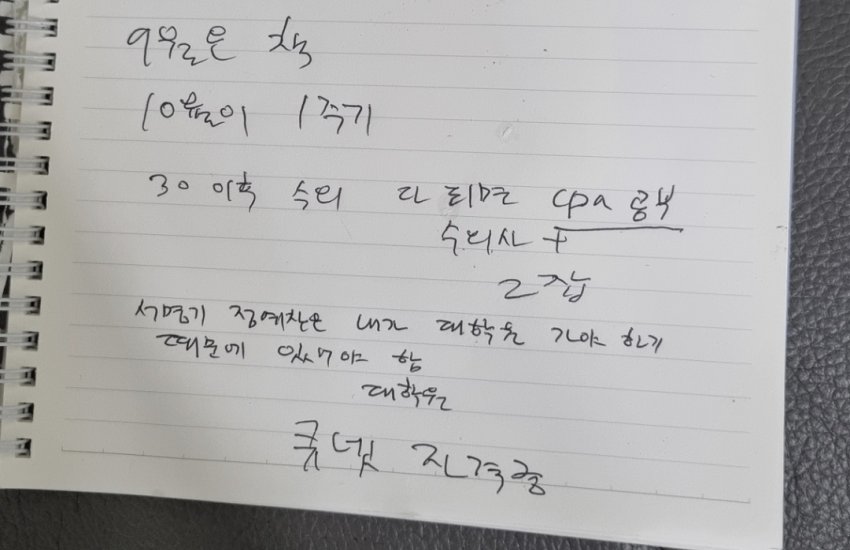 9월은 책
10월이 1주기
30 이후 수의 다 되면 cpa 공부
수의사 +
2 잡
서명기 정예찬은 내가 대학원 가야 하기
때문에 있어야 함
대학원
큐넷 자격증